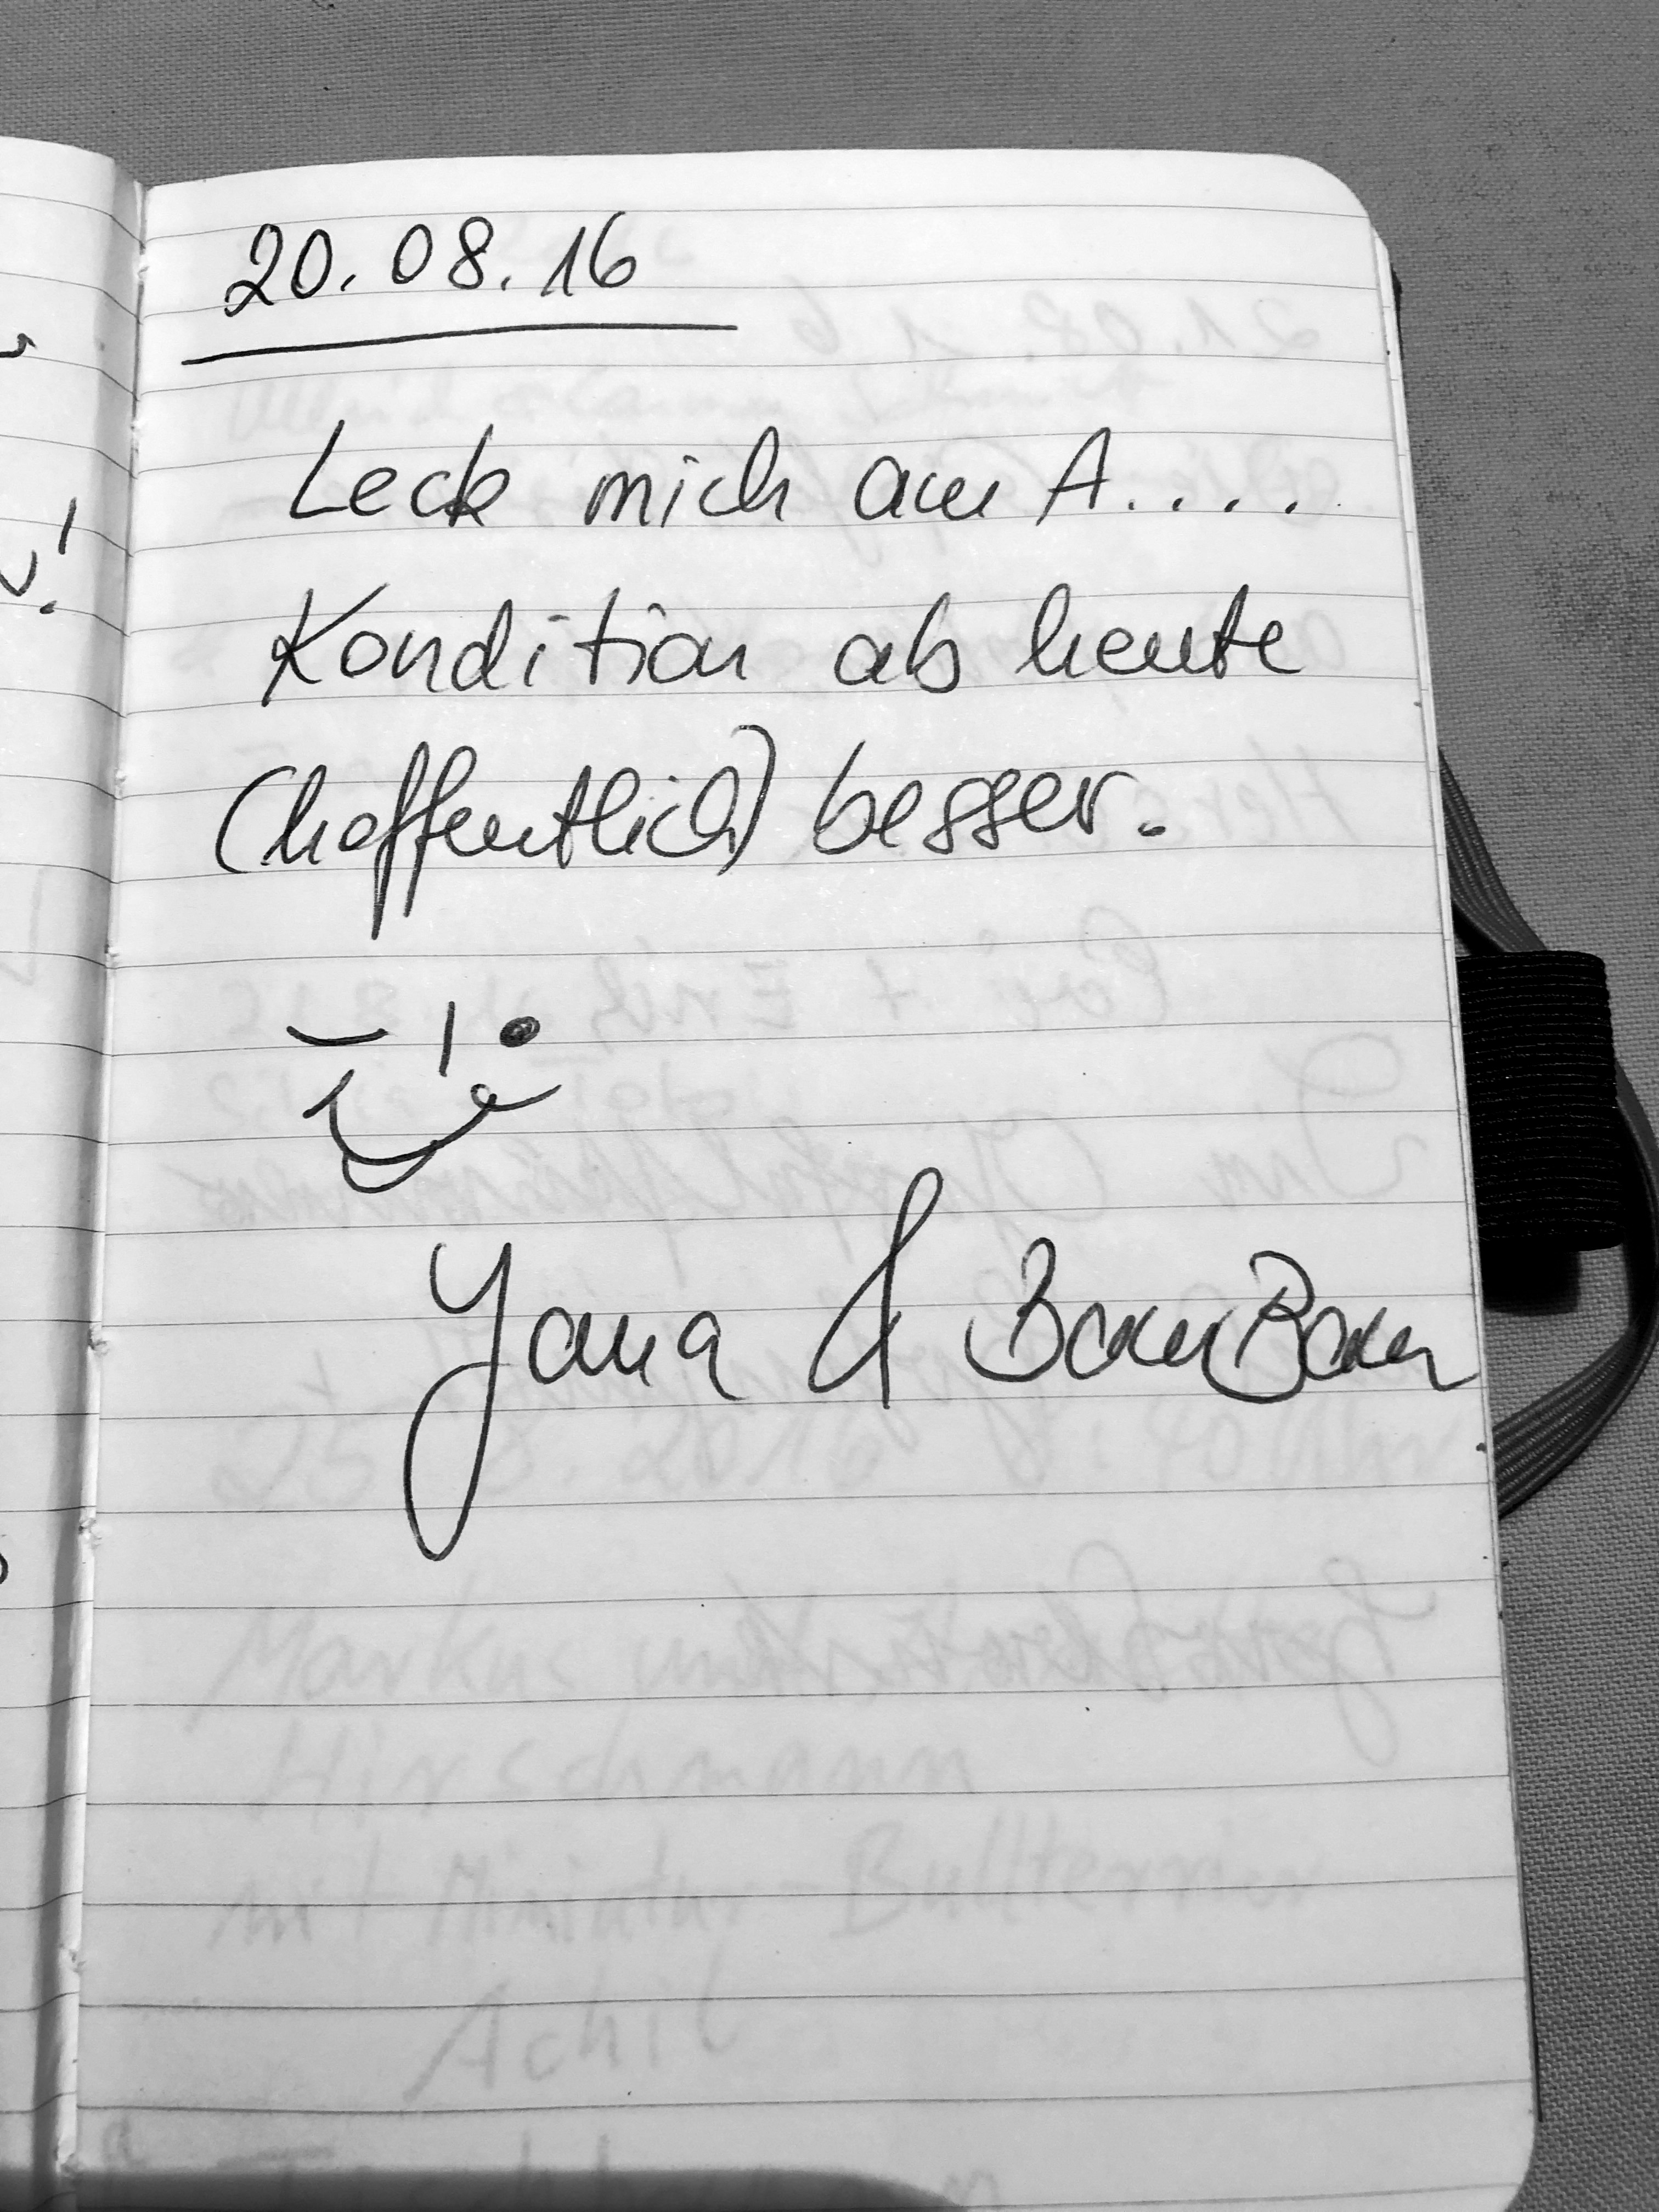 20.08.16
Leck mich am A....
Kondition ab heute
(hoffentlich) besser.
Yana & BamBam